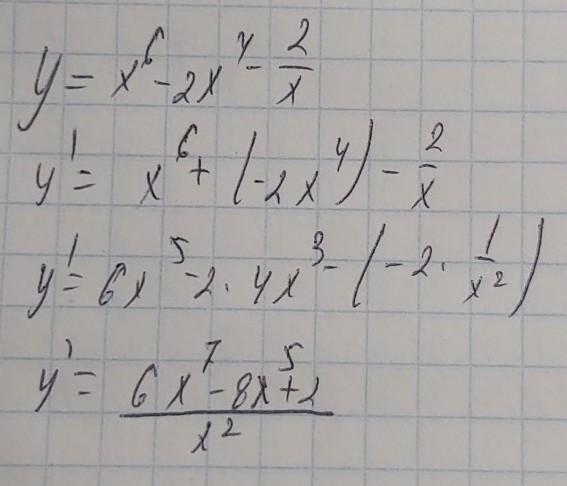 y = x⁶ - 2x⁴ - 2/x
y' = x⁶ + (-2x⁴) - 2/x
y' = 6x⁵ - 2 · 4x³ - (-2 · 1/x²)
y' = (6x⁷ - 8x⁵ + 2)/x²